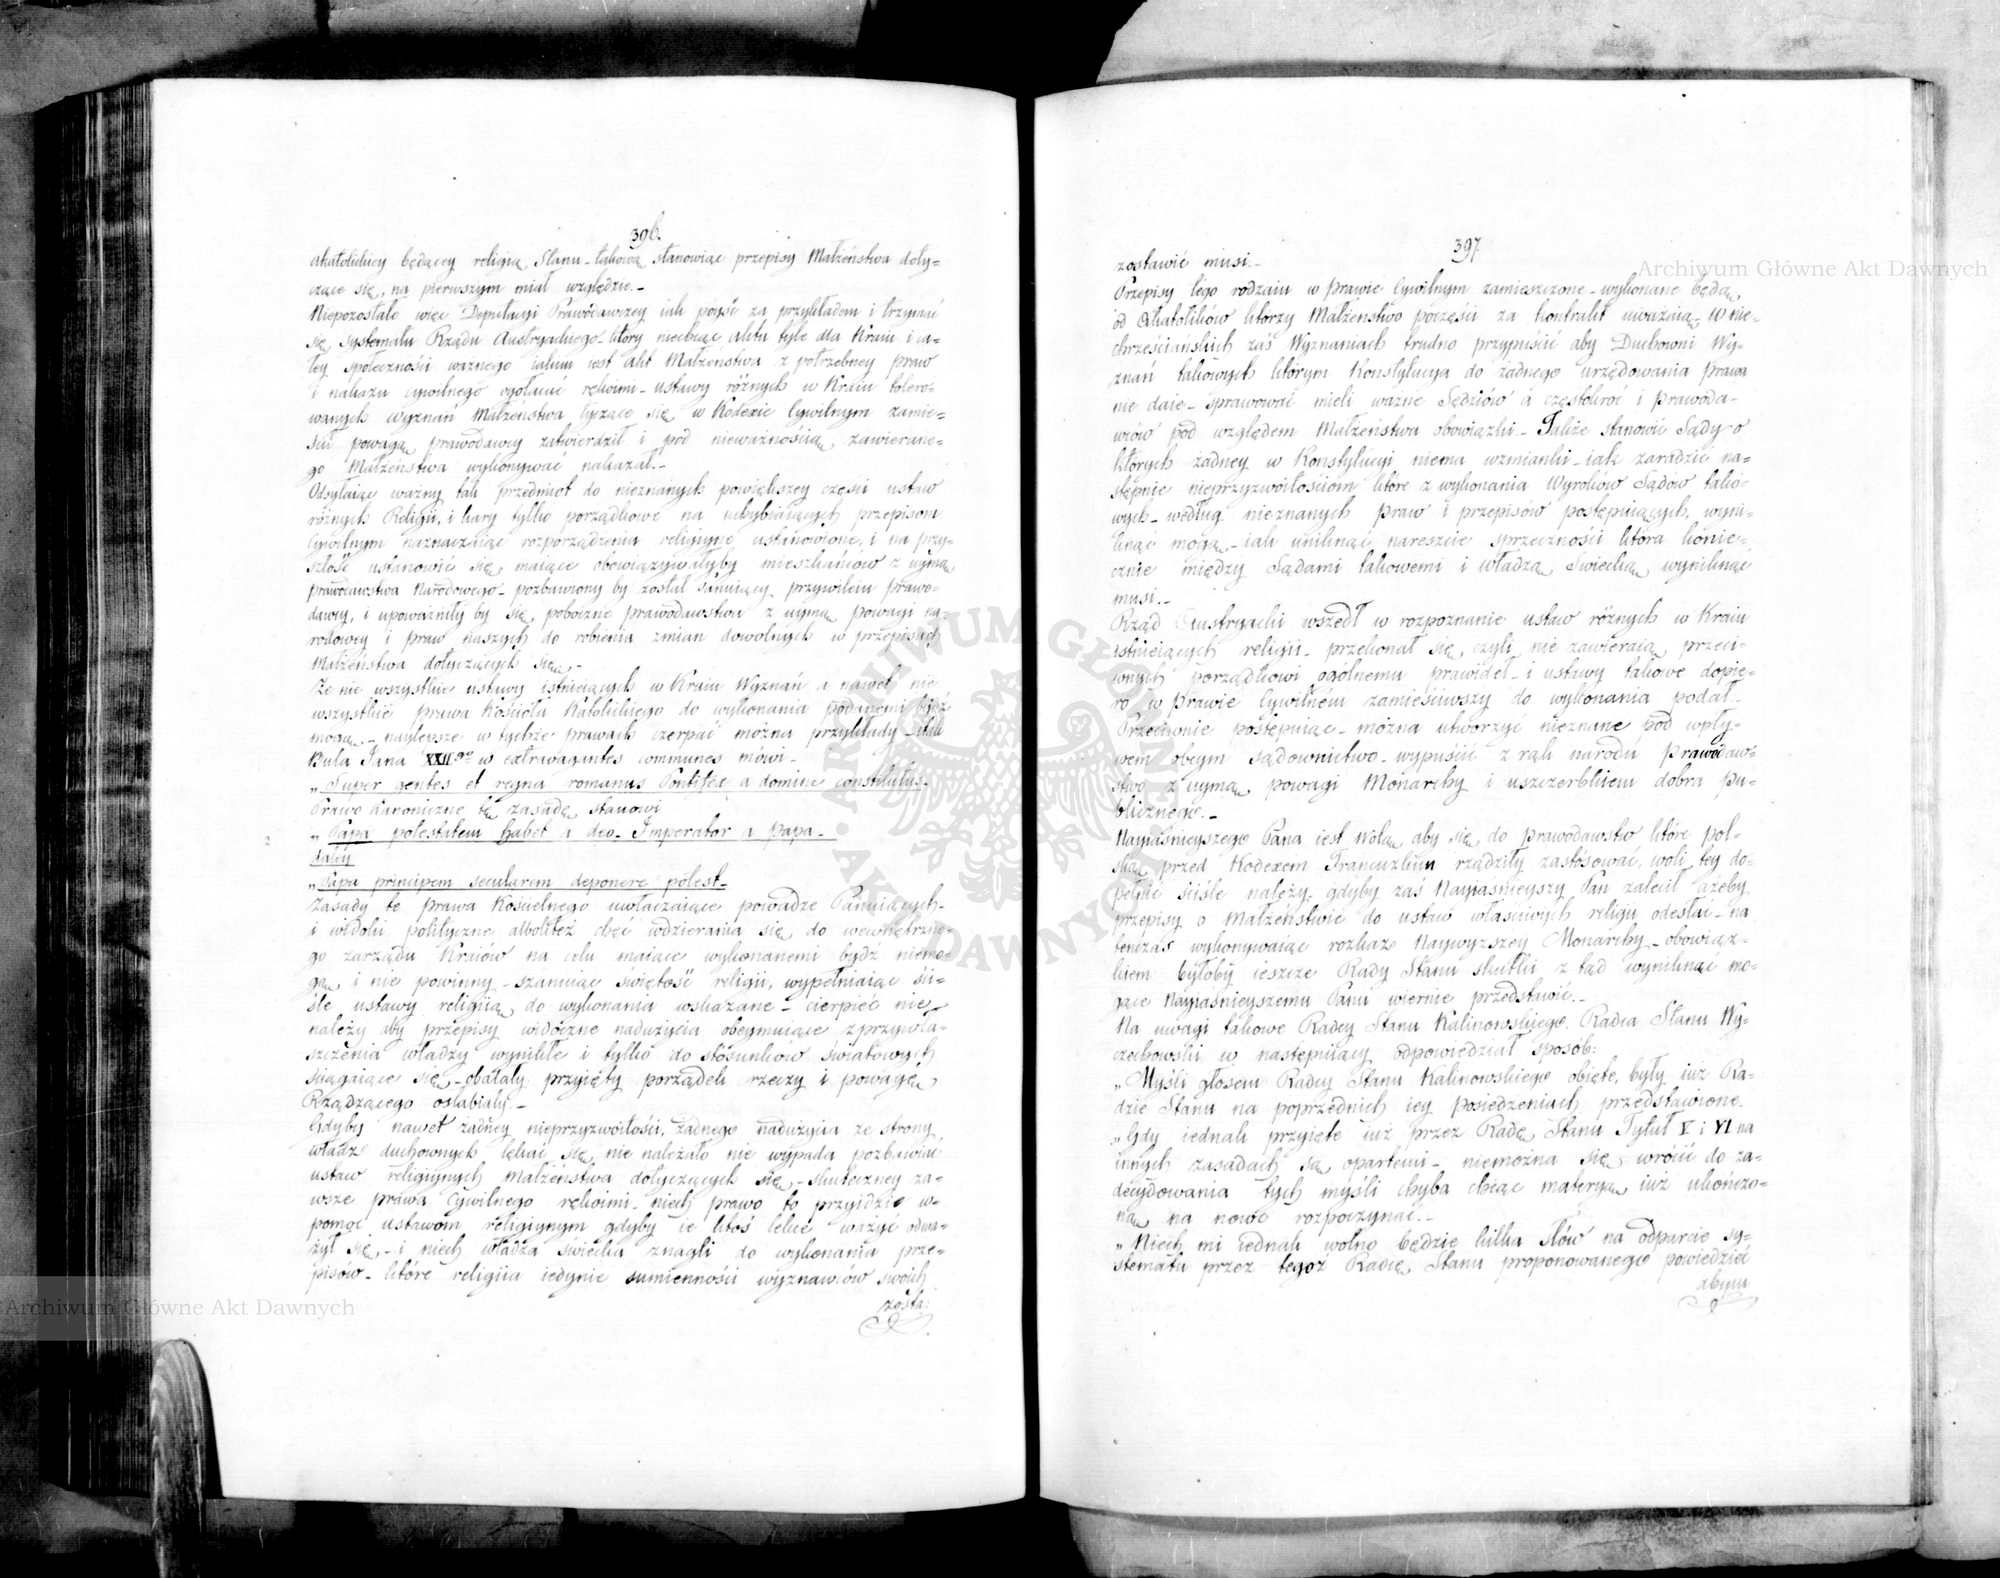 396.
akatolickiey będącey religią Stanu takową stanowiąc przepisy Małżeństwa doty=
czące się, na pierwszym miał względzie.-
Niepozostało więc Deputacyi Prawodawczey iak póyść za przykładem i trzymać
się systematu Rządu Austryackiego który niechcąc aktu tyle dla Kraiu i ca=
łey społeczności ważnego iakim iest akt Małżeństwa z potrzebney praw
i nakazu cywilnego ogołacać rękoimi - ustawy różnych w Kraiu tolero=
wanych wyznań Małżeństwa tyczące się w Kodexie Cywilnym zamie=
ścił powagą prawodawcy zatwierdził i pod nieważnością zawierane=
go Małżeństwa wykonywać nakazał.-
Odsyłaiąc ważny tak przedmiot do nieznanych powiększey części ustaw
różnych Religii, i kary tylko porządkowe na uchybiaiących przepisom
Cywilnym naznaczaiąc rozporządzenia religiyne ustanowione, i na przy=
szłość ustanowić się maiące obowiązywałyby mieszkańców z uymą
prawodawstwa Narodowego - pozbawiony by został Panuiący przywileiu prawo=
dawcy, i upoważniły by się poboczne prawodawstwa z uymą powagi na=
rodowey i praw naszych do robienia zmian dowolnych w przepisach
Małżeństwa dotyczących się.-
Że nie wszystkie ustawy istnieiących w Kraiu Wyznań a nawet nie
wszystkie prawa Kościoła Katolickiego do wykonania podanemi bydź
mogą - naylepsze w tychże prawach czerpać można przykłady - Iak
Bula Jana XXIIgo w extravagantes communes mówi -
„Super gentes et regna romanus Pontifex a domino constitutus -
Prawo Kanoniczne tę zasadę stanowi
„Papa potestatem habet a deo - Imperator a Papa -
daley
„Papa principem secularem deponere potest -
Zasady te prawa Kościelnego uwłaczaiące powadze Panuiących -
i widoki polityczne albo też chęć wdzierania się do wewnętrzne=
go zarządu Kraiów na celu maiące wykonanemi bydź niemo=
gą i nie powinny - szanuiąc świętość religii, wypełniaiąc ści=
śle ustawy religiią do wykonania wskazane - cierpieć nie
należy aby przepisy widoczne nadużycia obeymuiące z przywła=
szczenia władzy wynikłe i tylko do stosunków światowych
ściągaiące się - obalały przyięty porządek rzeczy i powagę
Rządzącego osłabiały.-
Gdyby nawet żadney nieprzyzwoitości, żadnego nadużycia ze strony
władz duchownych lękać się nie należało nie wypada pozbawiać
ustaw religiynych Małżeństwa dotyczących się - skuteczney za=
wsze prawa Cywilnego rękoimi - niech prawo to przyidzie w=
pomoc ustawom religiynym gdyby ie ktoś lekce ważyć odwa=
żył się - i niech władza świecka znagli do wykonania prze=
pisów - które religiia iedynie sumienności wyznawców swoich
zosta:
397
zostawić musi.-
Przepisy tego rodzaiu w prawie Cywilnym zamieszczone - wykonane będą
od Akatolików którzy Małżeństwo poczęści za kontrakt uważaią - W nie=
chrześciańskich zaś Wyznaniach trudno przypuścić aby Duchowni Wy=
znań takowych którym Konstytucya do żadnego urzędowania prawa
nie daie - sprawować mieli ważne Sędziów a częstokroć i prawoda=
wców pod względem Małżeństwa obowiązki - Także stanowić Sądy o
których żadney w Konstytucyi niema wzmianki - iak zaradzić na=
stępnie nieprzyzwoitościom które z wykonania Wyroków Sądów tako=
wych - według nieznanych praw i przepisów postępuiących, wyni=
knąć mogą - iak uniknąć nareszcie sprzeczności która konie=
cznie między Sądami takowemi i władzą Swiecką wyniknąć
musi.-
Rząd Austryacki wszedł w rozpoznanie ustaw różnych w Kraiu
istnieiących religii - przekonał się czyli nie zawieraią przeci=
wnych porządkowi ogólnemu prawideł - i ustawy takowe dopie=
ro w prawie Cywilném zamieściwszy do wykonania podał -
Przeciwnie postępuiąc - można utworzyć nieznane pod wpły=
wem obcym sądownictwo - wypuścić z rąk narodu prawodaw=
stwo z uymą powagi Monarchy i uszczerbkiem dobra pu=
blicznego.-
Nayiaśnieyszego Pana iest Wolą aby się do prawodawstw które Pol=
ską przed Kodexem Francuzkim rządziły zastósować, woli tey do=
pełnić ściśle należy - gdyby zaś Nayiaśnieyszy Pan zalecił ażeby
przepisy o Małżeństwie do ustaw właściwych religii odesłać - na
tenczas wykonywaiąc rozkaz Naywyższey Monarchy - obowiąz=
kiem byłoby ieszcze Rady Stanu skutki z tąd wyniknąć mo=
gące Nayiaśnieyszemu Panu wiernie przedstawić.-
Na uwagi takowe Radcy Stanu Kalinowskiego Radca Stanu Wy=
czechowski w następuiący odpowiedział sposób:
„Myśli głosem Radcy Stanu Kalinowskiego obięte, były iuż Ra=
dzie Stanu na poprzednich iey posiedzeniach przedstawione.
„Gdy iednak przyięte iuż przez Radę Stanu Tytuł V i VI na
innych zasadach są opartemi - niemożna się wrócić do za=
decydowania tych myśli chyba chcąc materyą iuż ukończo=
ną na nowo rozpoczynać.-
„Niech mi iednak wolno będzie kilka słów na odparcie sy=
stematu przez tegoż Radcę Stanu proponowanego powiedzieć
abym
Archiwum Główne Akt Dawnych
Archiwum Główne Akt Dawnych
ARCHIWUM GŁÓWNE AKT DAWNYCH